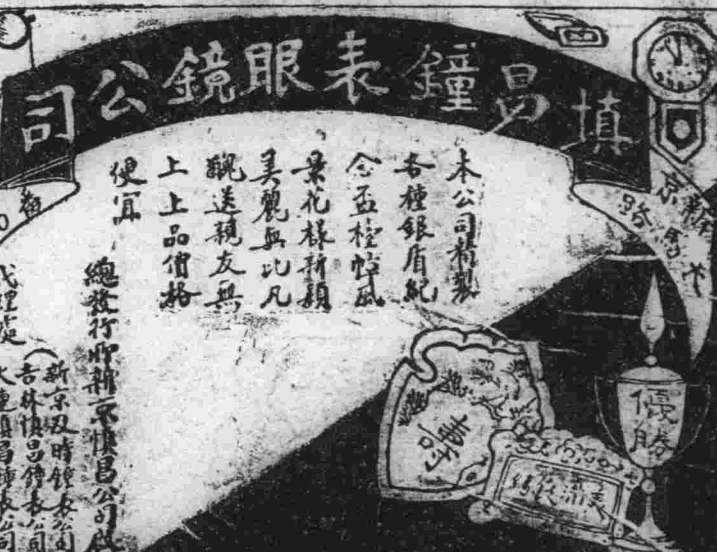 填昌鐘表眼鏡公司
本公司精製
各種銀盾紀
念盃檯帖風
景花樣新穎
美麗無比凡
餽送親友無
上上品價格
便宜
總發行所新京慎昌公司啟
新京及時鐘表公司
吉林慎昌鐘表公司
大連慎昌鐘表公司
代理處
優勝
壽